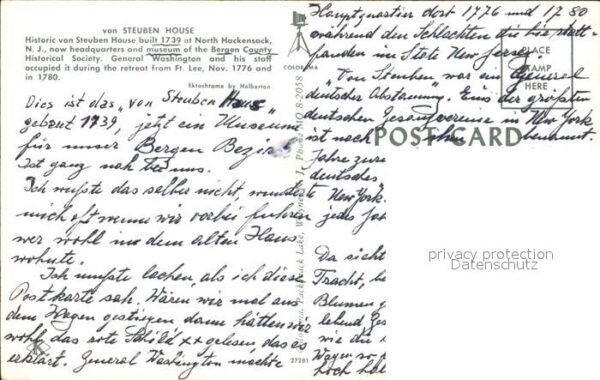 von STEUBEN HOUSE
Historic von Steuben House built 1739 at North Hackensack,
N. J., now headquarters and museum of the Bergen County
Historical Society. General Washington and his staff
occupied it during the retreat from Ft. Lee, Nov. 1776 and
in 1780.
Ektachrome by Halberton
Dies ist das „von Steuben House"
gebaut 1739, jetzt ein Museum
für unser Bergen Bezirk
Ist ganz nah bei uns.
Ich wußte das selber nicht wunderte
mich oft wenn wir vorbei fuhren
wer wohl in dem alten Haus
wohnte.
Ich mußte lachen, als ich diese
Postkarte sah. Wären wir mal aus
dem Wagen gestiegen dann hätten wir
wohl das rote Schild xx gelesen das es
erklärt. General Washington machte
K
COLORAMA
Packanack Lake, Wayne, N. J. Photo MQ 8-2058
27281
Hauptquartier dort 1776 und 1780
während den Schlachten die hier statt-
fanden im State New Jersey.
„Von Steuben" war ein General
deutscher Abstammung. Eins der größten
deutschen Gesangvereine in New York
ist nach ihm benannt.
PLACE
STAMP
HERE
POST CARD
Jahre zurü
deutsches
New York.
jedes Jah
Da sieht
Tracht, he
Blumen g
lebend Ges
wie die
Wagen so
hoch bel
privacy protection
Datenschutz